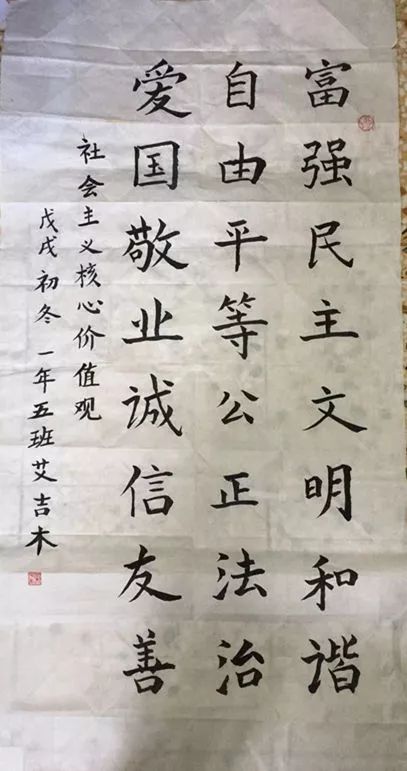 富强民主文明和谐
自由平等公正法治
爱国敬业诚信友善
社会主义核心价值观
戊戌初冬 一年五班艾吉木